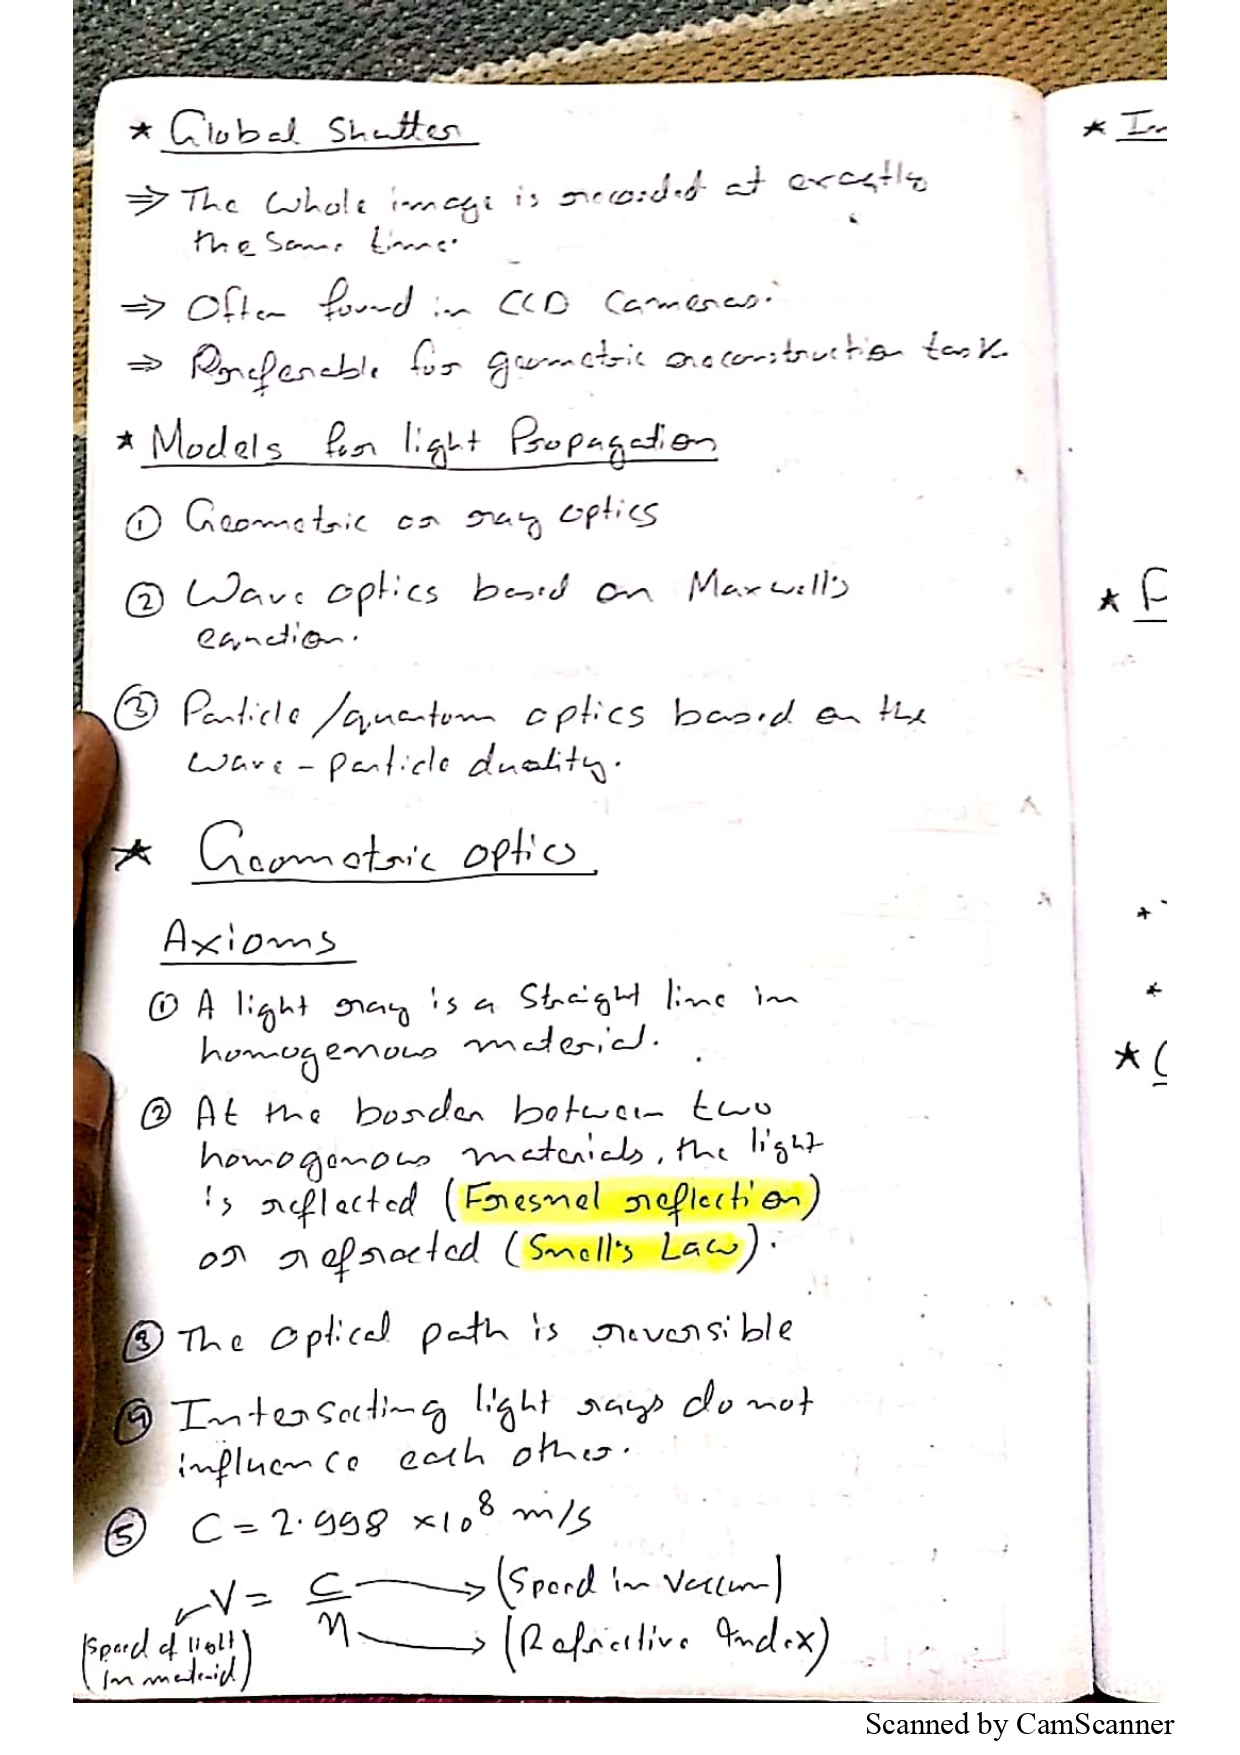 * Global Shutter
⇒ The whole image is recorded at exactly
the same time.
⇒ Often found in CCD Cameras.
⇒ Preferable for geometric reconstruction task.
* Models for light Propagation
① Geometric or ray optics
② Wave optics based on Maxwell's
eqnction.
③ Particle/quantum optics based on the
wave-particle duality.
* Geometric optics
Axioms
① A light ray is a Straight line in
homogenous material.
② At the border between two
homogenous materials, the light
is reflected (Fresnel reflection)
or refracted (Snell's Law).
③ The Optical path is reversible
④ Intersecting light rays do not
influence each other.
⑤ C = 2.998 ×10⁸ m/s
V = C/n
(Speed in Vaccum)
(Refractive Index)
(speed of light
in material)
* In
* P
*
*
* C
Scanned by CamScanner